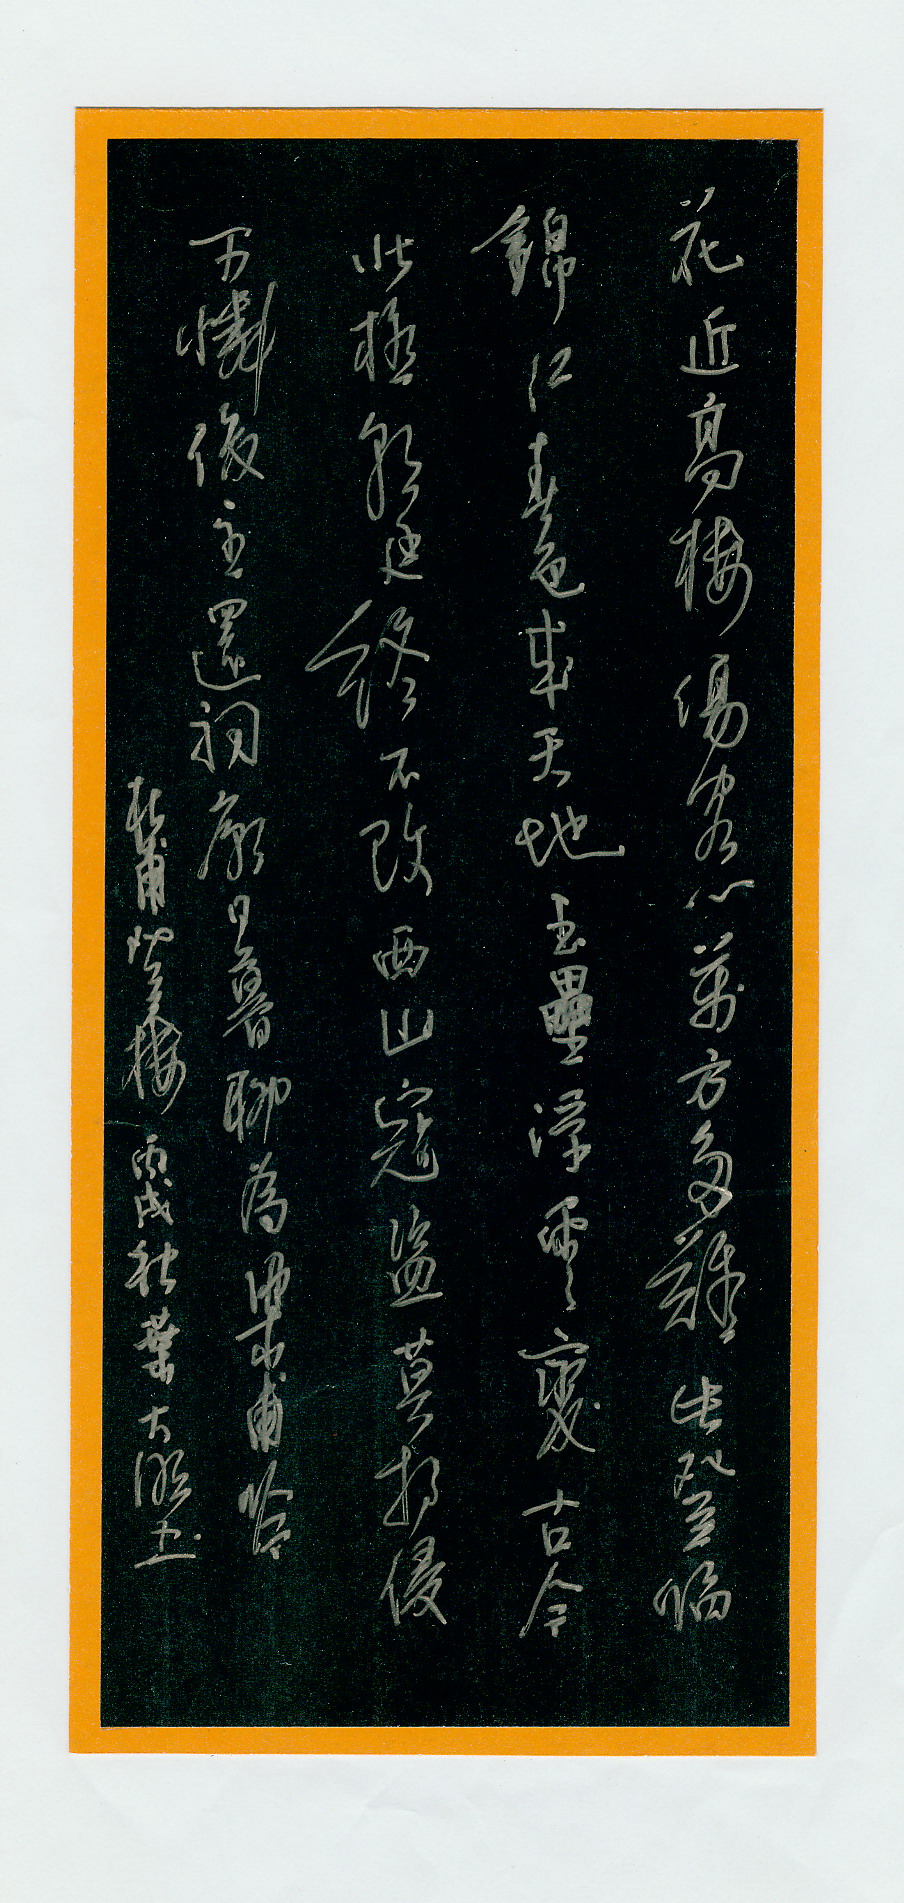 花近高樓傷客心萬方多難此登臨
錦江春色來天地玉壘浮雲變古今
北極朝廷終不改西山寇盜莫相侵
可憐後主還祠廟日暮聊為梁甫吟
杜甫登樓 丙戌秋葉大書